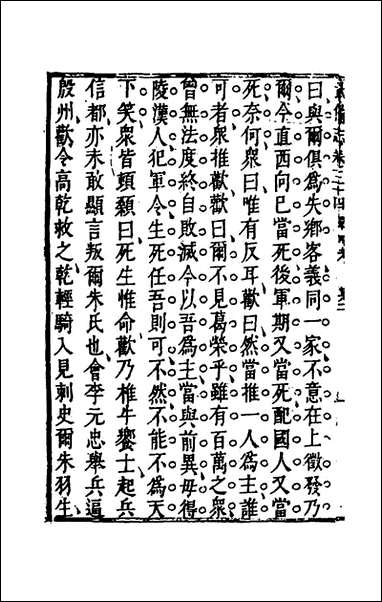 武備志卷二十四
曰與爾俱爲失鄉客義同一家不意在上徵發乃
爾今直西向已當死後軍期又當死配國人又當
死奈何衆曰唯有反耳歡曰然當推一人爲主誰
可者衆推歡歡曰爾不見葛榮乎雖有百萬之衆
曾無法度終自敗滅今以吾爲主當與前異毋得
陵漢人犯軍令生死任吾則可不然不能不爲天
下笑衆皆頓顙曰死生惟命歡乃椎牛饗士起兵
信都亦未敢顯言叛爾朱氏也會李元忠舉兵逼
殷州歡令高乾救之乾輕騎入見刺史爾朱羽生